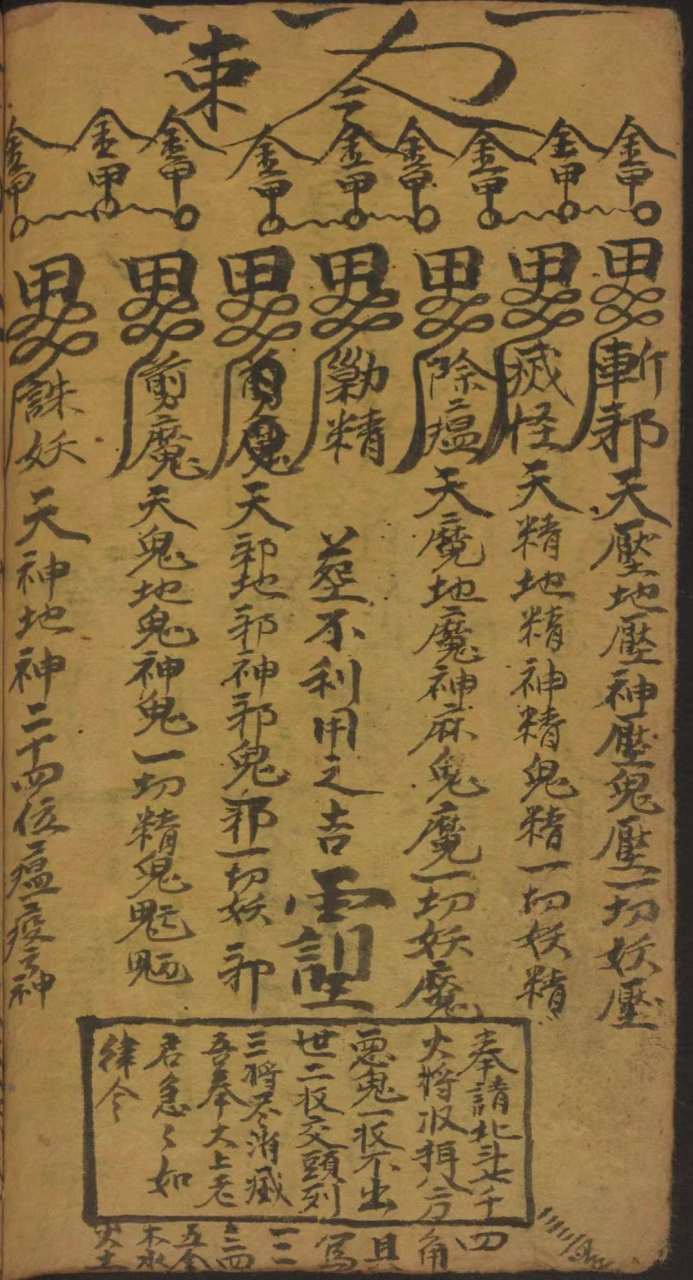 敕令
金甲 金甲 金甲 金甲 金甲 金甲 金甲 金甲 金甲
斬邪 天壓地壓神壓鬼壓一切妖壓
滅怪 天精地精神精鬼精一切妖精
除瘟 天魔地魔神麻鬼魔一切妖魔
勦精 墓不利用之吉
天邪地邪神邪鬼邪一切妖邪
剪魔 天鬼地鬼神鬼一切精鬼魍魎
誅妖 天神地神二十四位瘟疫神
奉請北斗七千四
火將收輯八方角
惡鬼一收不出
世二收交頭列
三將尽消滅
吾奉太上老
君急〻如
律令
具
寫
一二
三四
五金
木水
火土